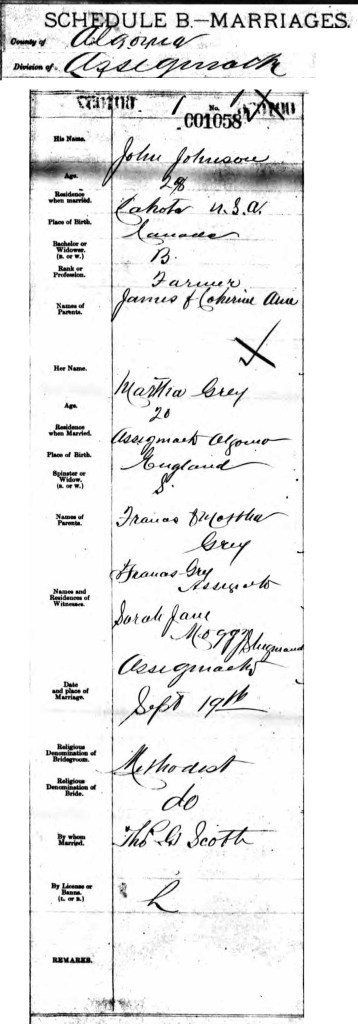 SCHEDULE B.—MARRIAGES.
County of Algoma
Division of Assiginack
No.
001058
His Name.
John Johnson
Age.
28
Residence when married.
Dakota U.S.A.
Place of Birth.
Canada
Bachelor or Widower, (B. or W.)
B.
Rank or Profession.
Farmer
Names of Parents.
James & Catherine
Her Name.
Martha Grey
Age.
20
Residence when Married.
Assiginack Algoma
Place of Birth.
England
Spinster or Widow. (S. or W.)
S
Names of Parents.
Francas & Martha
Grey
Names and Residences of Witnesses.
Francas Gry
Assiginack
Sarah Jane
Date and place of Marriage.
Assiginack
Sept 19th
Religious Denomination of Bridegroom.
Methodist
Religious Denomination of Bride.
do
By whom Married.
Thos G Scott
By License or Banns. (L. or B.)
L
REMARKS.